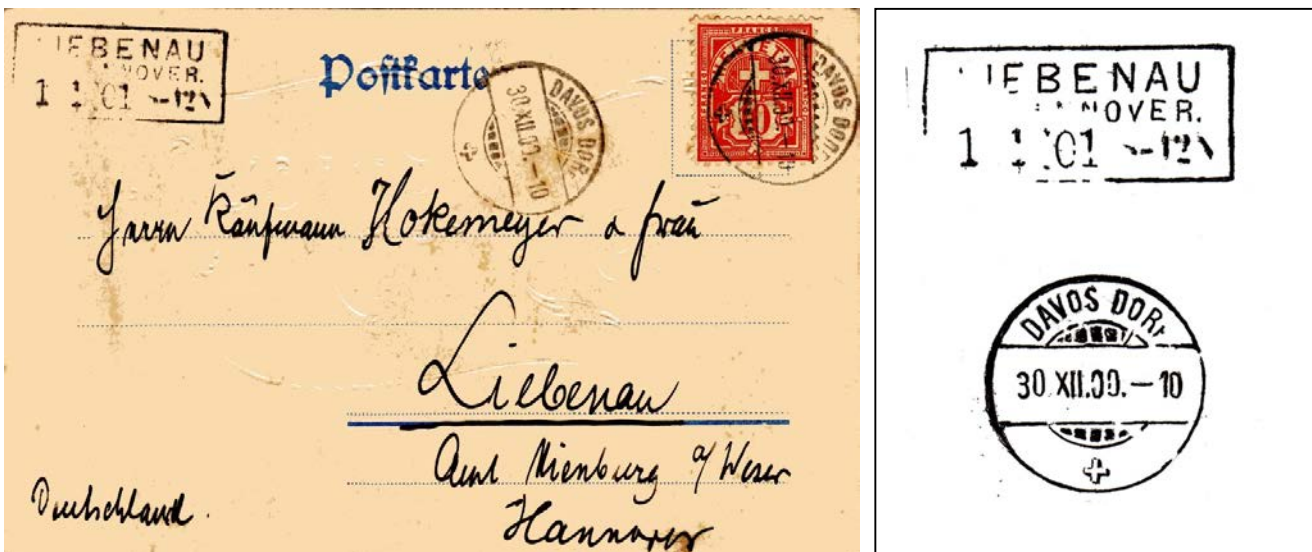 LIEBENAU
NOVER.
1 1 01 -12N
Postkarte
DAVOS DORF
30.XII.00.-10
FRANCO
HELVETIA
10
DAVOS DORF
30.XII.00.-10
Herrn Kaufmann Hokemeyer & Frau
Liebenau
Amt Nienburg a/ Weser
Hannover
Deutschland.
IEBENAU
NOVER.
1 1 '01 -12N
DAVOS DORF
30.XII.00.-10